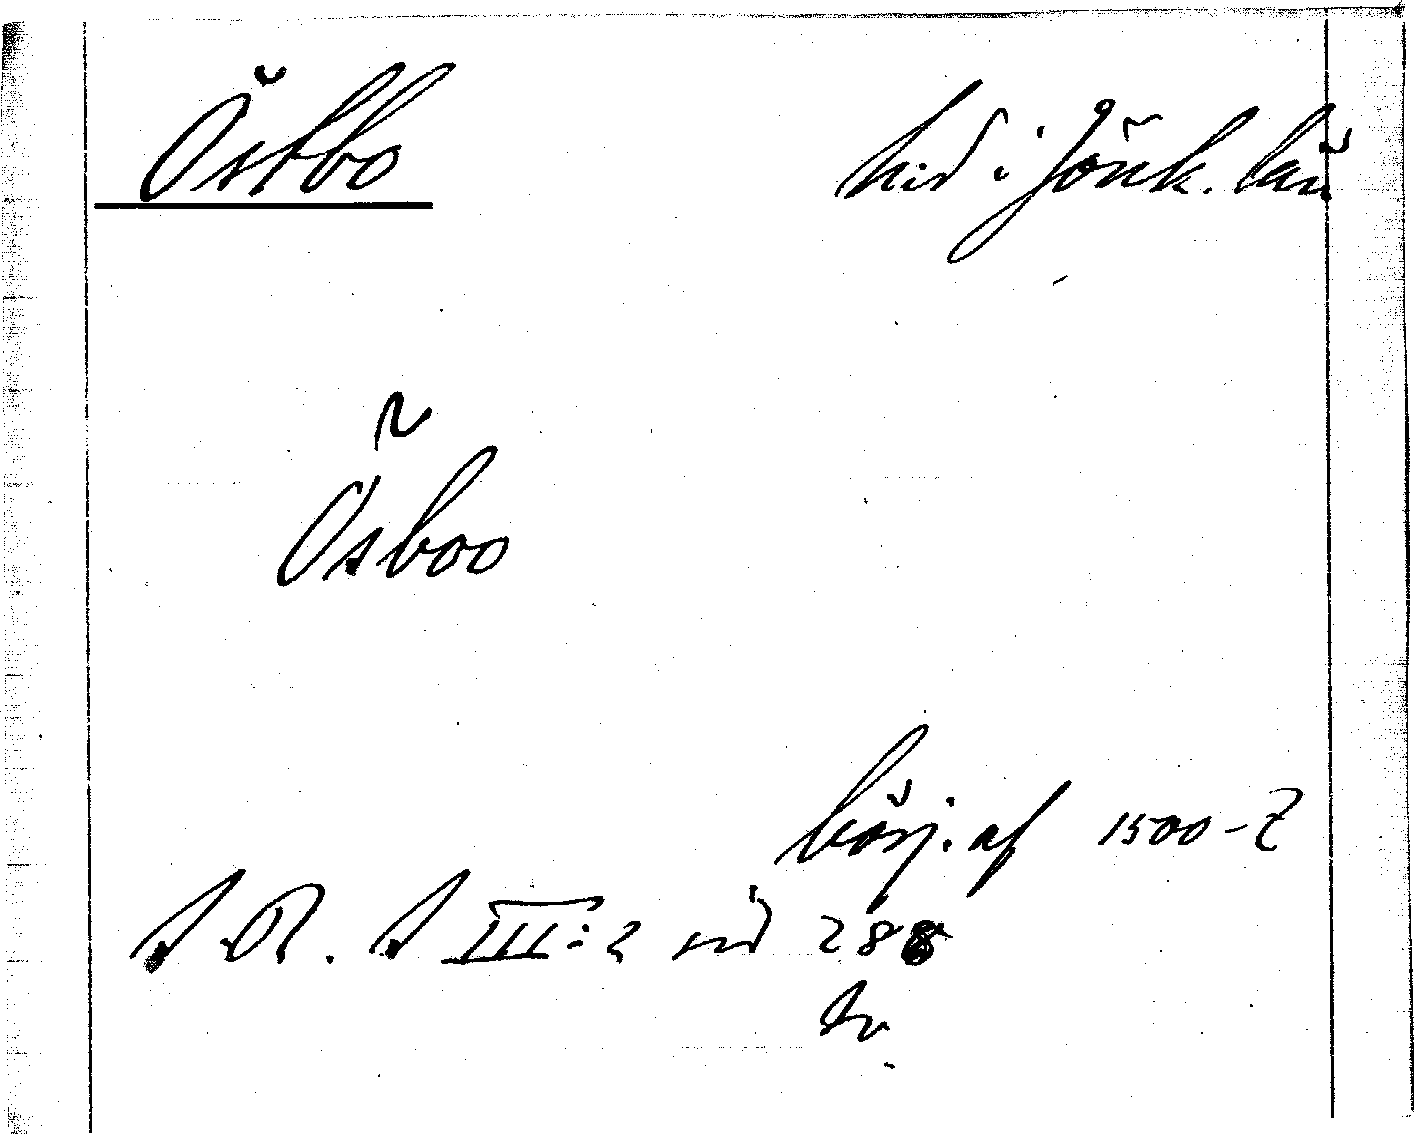 Östbo hd i Jönk. län
Ösboo
börj. af 1500-t
S.R. S III:2 sid 288